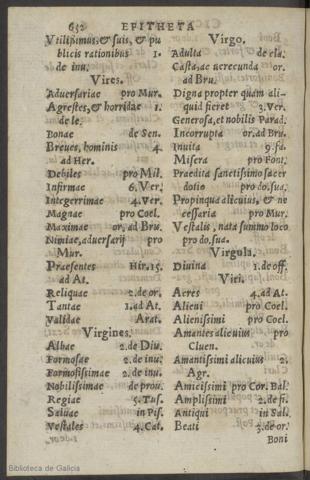 632 EPITHETA
Vtilißimus, & suis, & pu
blicis rationibus 1.
de inu.
Vires.
Aduersariae pro Mur.
Agrestes, & horridae 1.
de le.
Bonae de Sen.
Breues, hominis 4.
ad Her.
Debiles pro Mil.
Infirmae 6. Ver.
Integerrimae 4. Ver.
Magnae pro Coel.
Maximae or. ad Bru.
Nimiae, aduersarij pro
Mur.
Praesentes Hir. 15.
ad At.
Reliquae 2. de or.
Tantae 1. ad At.
Validae Arat.
Virgines.
Albae 2. de Diu.
Formosae 2. de inu.
Formosissimae 2. de inu.
Nobilissimae de prou.
Regiae 5. Tus.
Saluae in Pis.
Vestales 4. Cat.
Virgo.
Adulta de cla.
Casta, ac uerecunda or.
ad Bru.
Digna propter quam ali-
quid fieret 3. Ver.
Generosa, et nobilis Parad.
Incorrupta or. ad Bru.
Inuita 9. fa.
Misera pro Font.
Praedita sanctissimo sacer
dotio pro do. sua.
Propinqua alicuius, & ne
cessaria pro Mur.
Vestalis, nata summo loco
pro do. sua.
Virgula.
Diuina 1. de off.
Viri.
Acres 4. ad At.
Alieni pro Coel.
Alienissimi pro Coel.
Amantes alicuius pro
Cluen.
Amantissimi alicuius 2.
Agr.
Amicissimi pro Cor. Bal.
Amplissimi 2. de fi.
Antiqui in Sal.
Beati 3. de or.
Boni
Biblioteca de Galicia